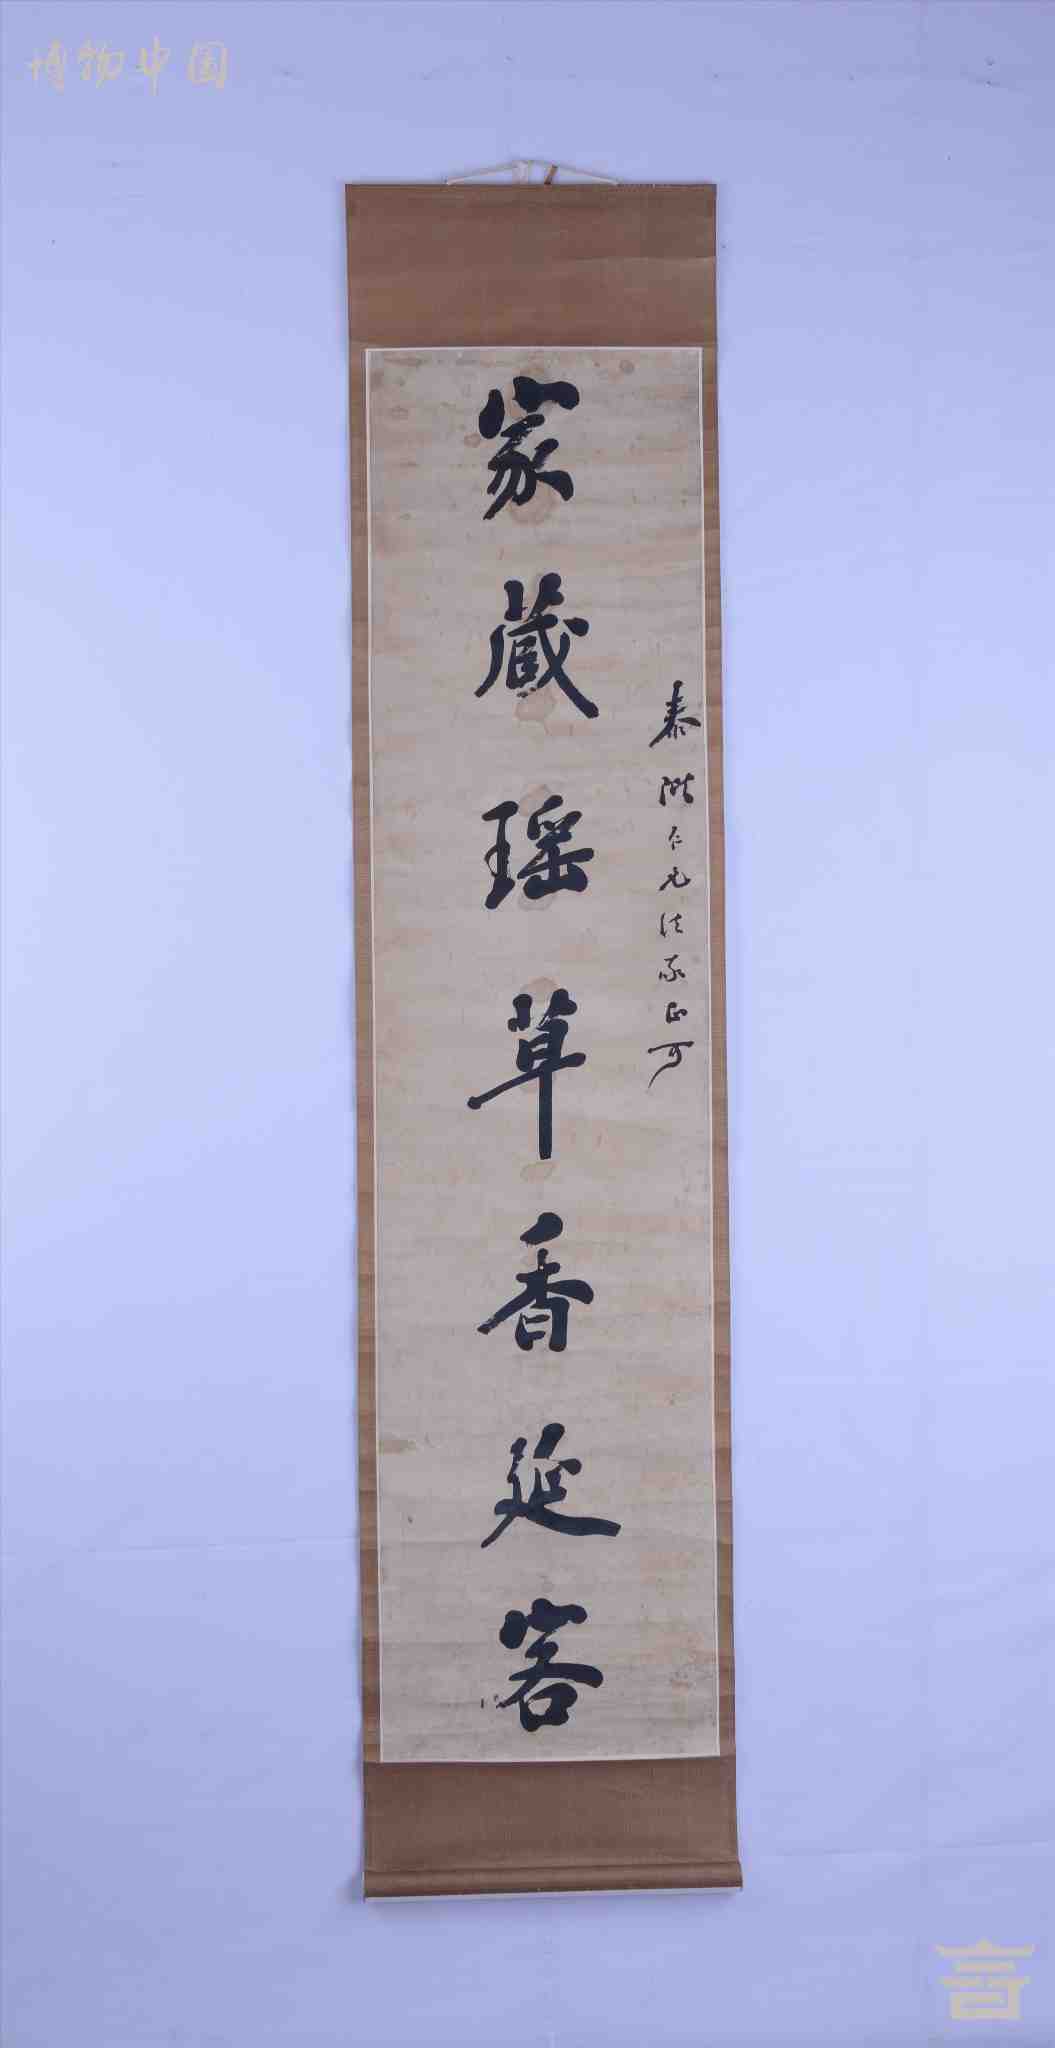 博物中国
泰階仁兄法家正可
家藏瑶草香延客